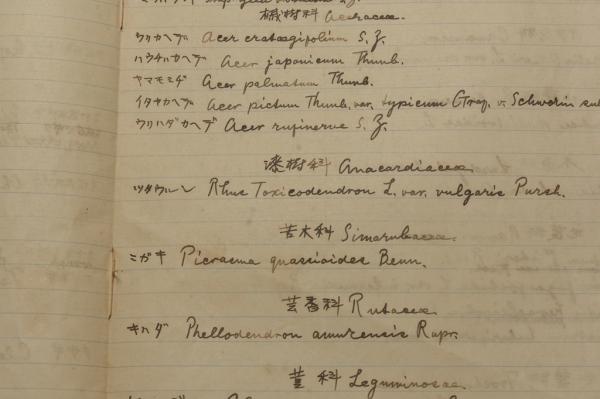 槭樹科 Aceraceae.
ウリカヘデ Acer crataegifolium S. Z.
ハウチハカヘデ Acer japonicum Thunb.
ヤマモミヂ Acer palmatum Thunb.
イタヤカヘデ Acer pictum Thunb. var. typicum Graf. v. Schwerin sub
ウリハダカヘデ Acer rufinerve S. Z.
漆樹科 Anacardiaceae.
ツタウルシ Rhus Toxicodendron L. var. vulgaris Pursh.
苦木科 Simarubaceae.
ニガキ Picrasma quassioides Benn.
芸香科 Rutaceae
キハダ Phellodendron amurensis Rupr.
荳科 Leguminosae.